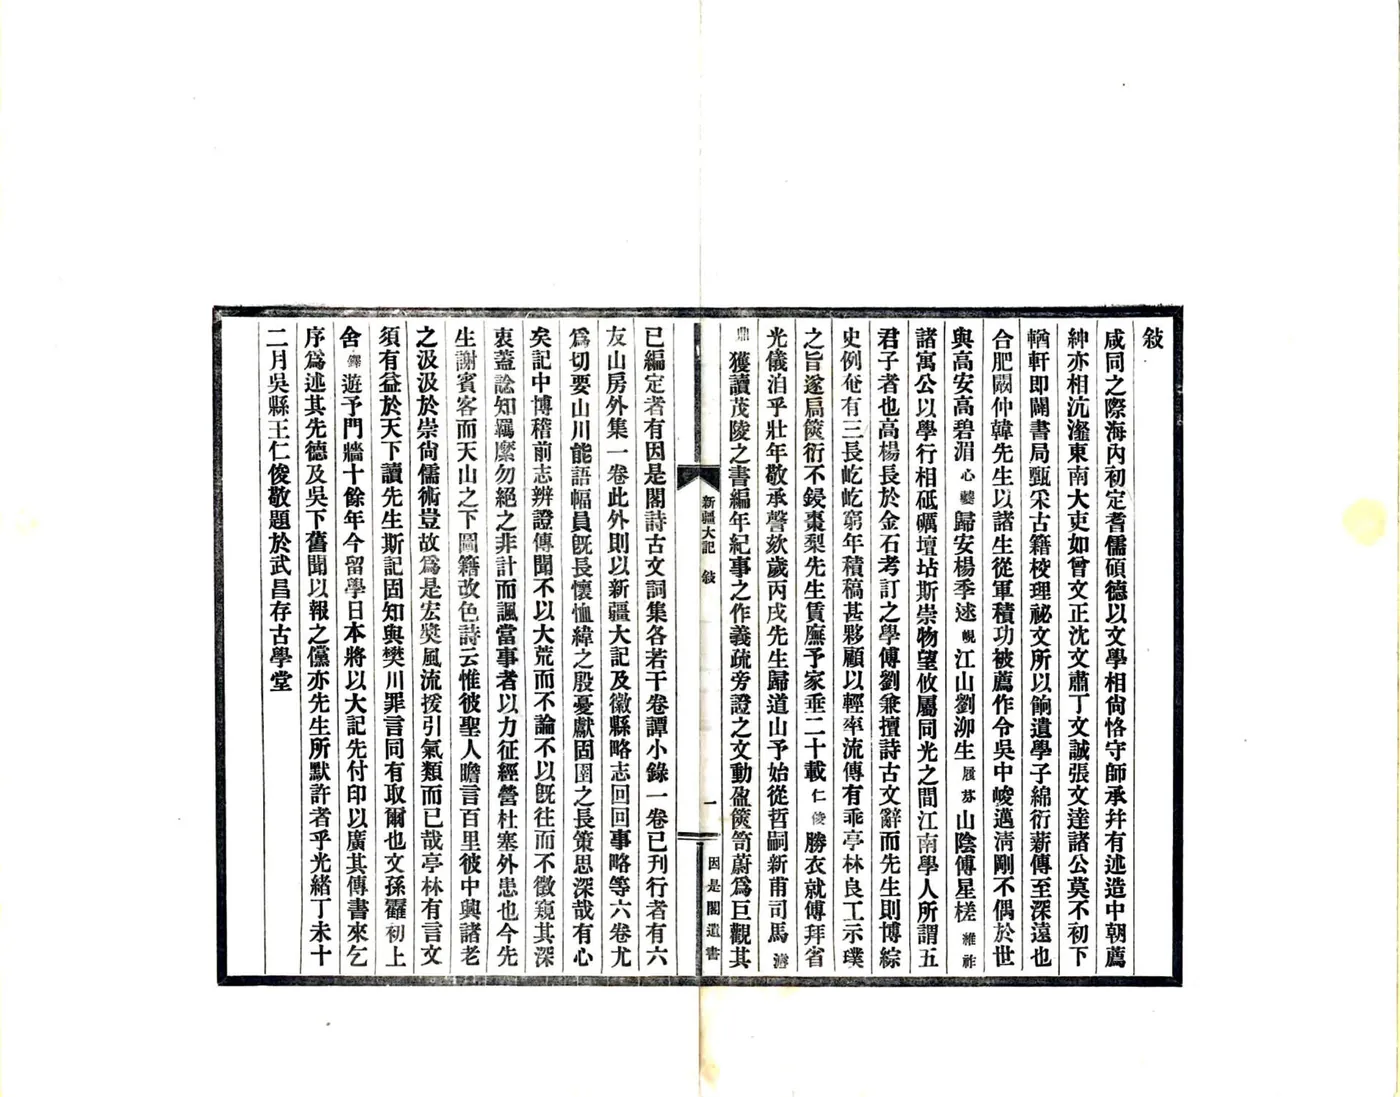 敍
咸同之際海內初定耆儒碩德以文學相尙恪守師承幷有述造中朝薦
紳亦相沆瀣東南大吏如曾文正沈文肅丁文誠張文達諸公莫不初下
輶軒卽闢書局甄采古籍校理祕文所以餉遺學子綿衍薪傳至深遠也
合肥闞仲韓先生以諸生從軍積功被薦作令吳中峻邁淸剛不偶於世
與高安高碧湄心夔歸安楊季逑峴江山劉泖生履芬山陰傅星槎維祚
諸寓公以學行相砥礪壇坫斯崇物望攸屬同光之間江南學人所謂五
君子者也高楊長於金石考訂之學傅劉兼擅詩古文辭而先生則博綜
史例奄有三長屹屹窮年積稿甚夥顧以輕率流傳有乖亭林良工示璞
之旨遂扃篋衍不鋟棗梨先生賃廡予家垂二十載仁俊勝衣就傅拜省
光儀洎乎壯年敬承謦欬歲丙戌先生歸道山予始從哲嗣新甫司馬濬
鼎獲讀茂陵之書編年紀事之作義疏旁證之文動盈篋笥蔚爲巨觀其
新疆大記 敍 一 因是閣遺書
已編定者有因是閣詩古文詞集各若干卷譚小錄一卷已刊行者有六
友山房外集一卷此外則以新疆大記及徽縣略志回回事略等六卷尤
爲切要山川能語幅員旣長懷恤緯之殷憂獻固圉之長策思深哉有心
矣記中博稽前志辨證傳聞不以大荒而不論不以旣往而不徵窺其深
衷蓋諗知羈縻勿絕之非計而諷當事者以力征經營杜塞外患也今先
生謝賓客而天山之下圖籍改色詩云惟彼聖人瞻言百里彼中興諸老
之汲汲於崇尙儒術豈故爲是宏奬風流援引氣類而已哉亭林有言文
須有益於天下讀先生斯記固知與樊川罪言同有取爾也文孫霍初上
舍鐸遊予門牆十餘年今留學日本將以大記先付印以廣其傳書來乞
序爲述其先德及吳下舊聞以報之儻亦先生所默許者乎光緒丁未十
二月吳縣王仁俊敬題於武昌存古學堂